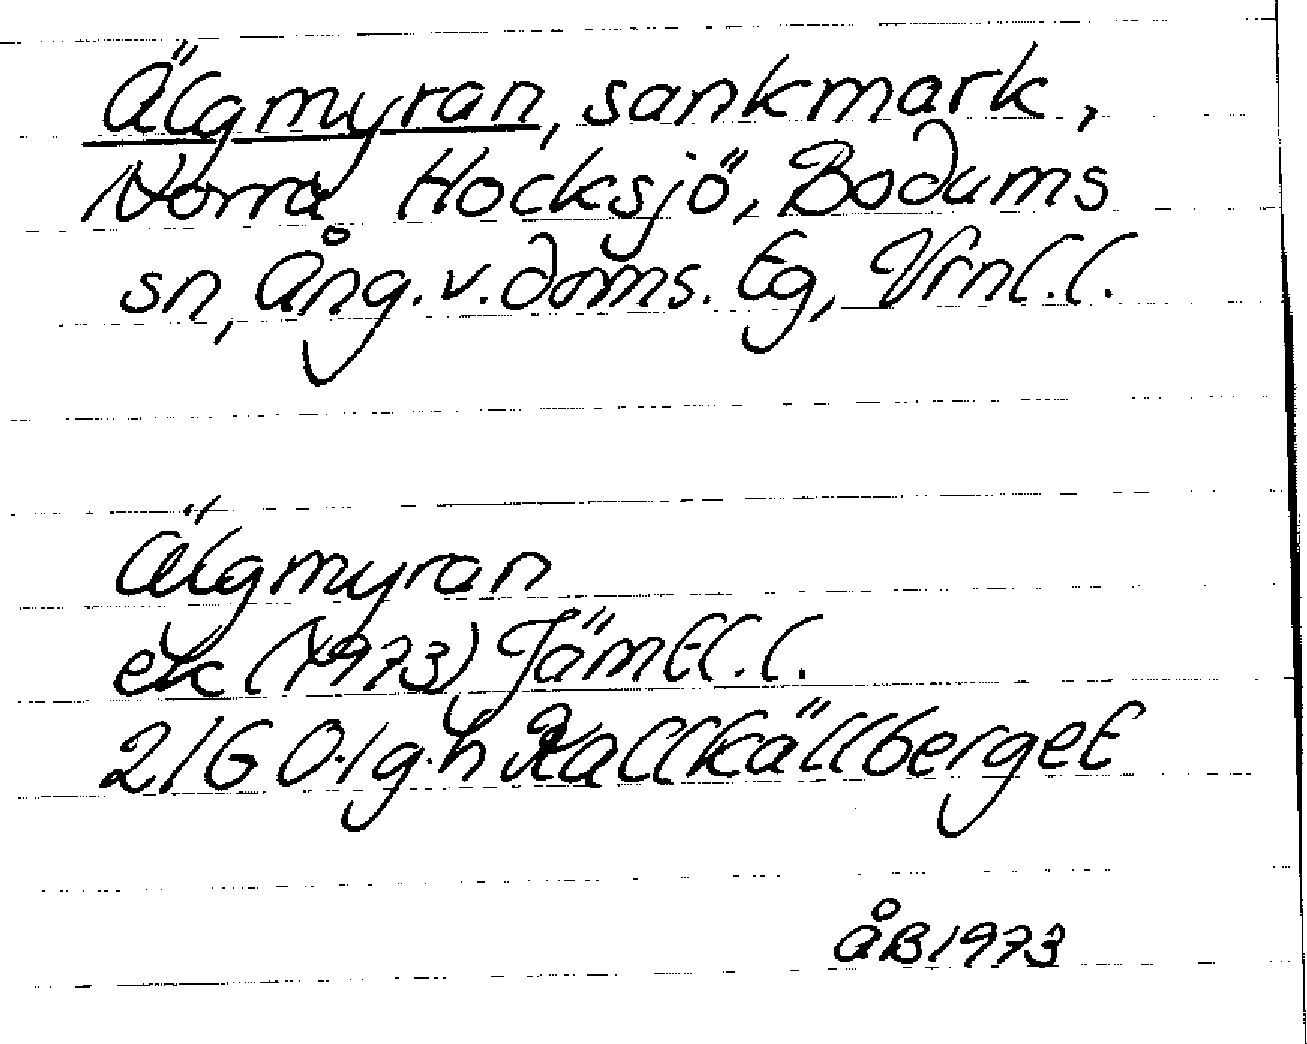 Älgmyran, sankmark,
Norra Hocksjö, Bodums
sn, Ång. v. doms. tg, Vrnl.l.
Älgmyran
ek (1973) Jämtl.l.
21G 0-1g-h Kallkällberget
åB 1973